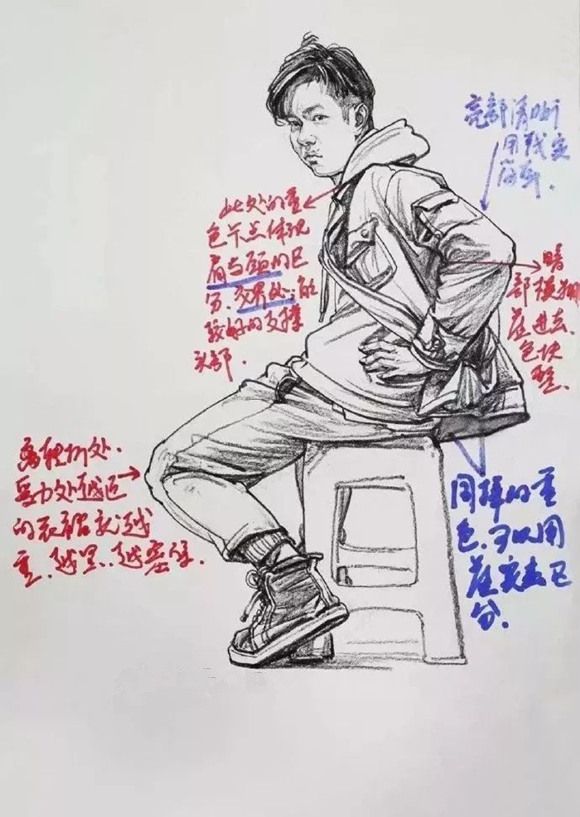 亮部清晰
用线实
此处的重
色下点体现
肩与颈的区
分.交界处;能
较好的支撑
头部.
暗
部模糊
在进去.
色块
整.
离转折处.
受力处越近
的衣褶就越
重.越黑.越密集.
同样的重
色.可以用
在 区
分.